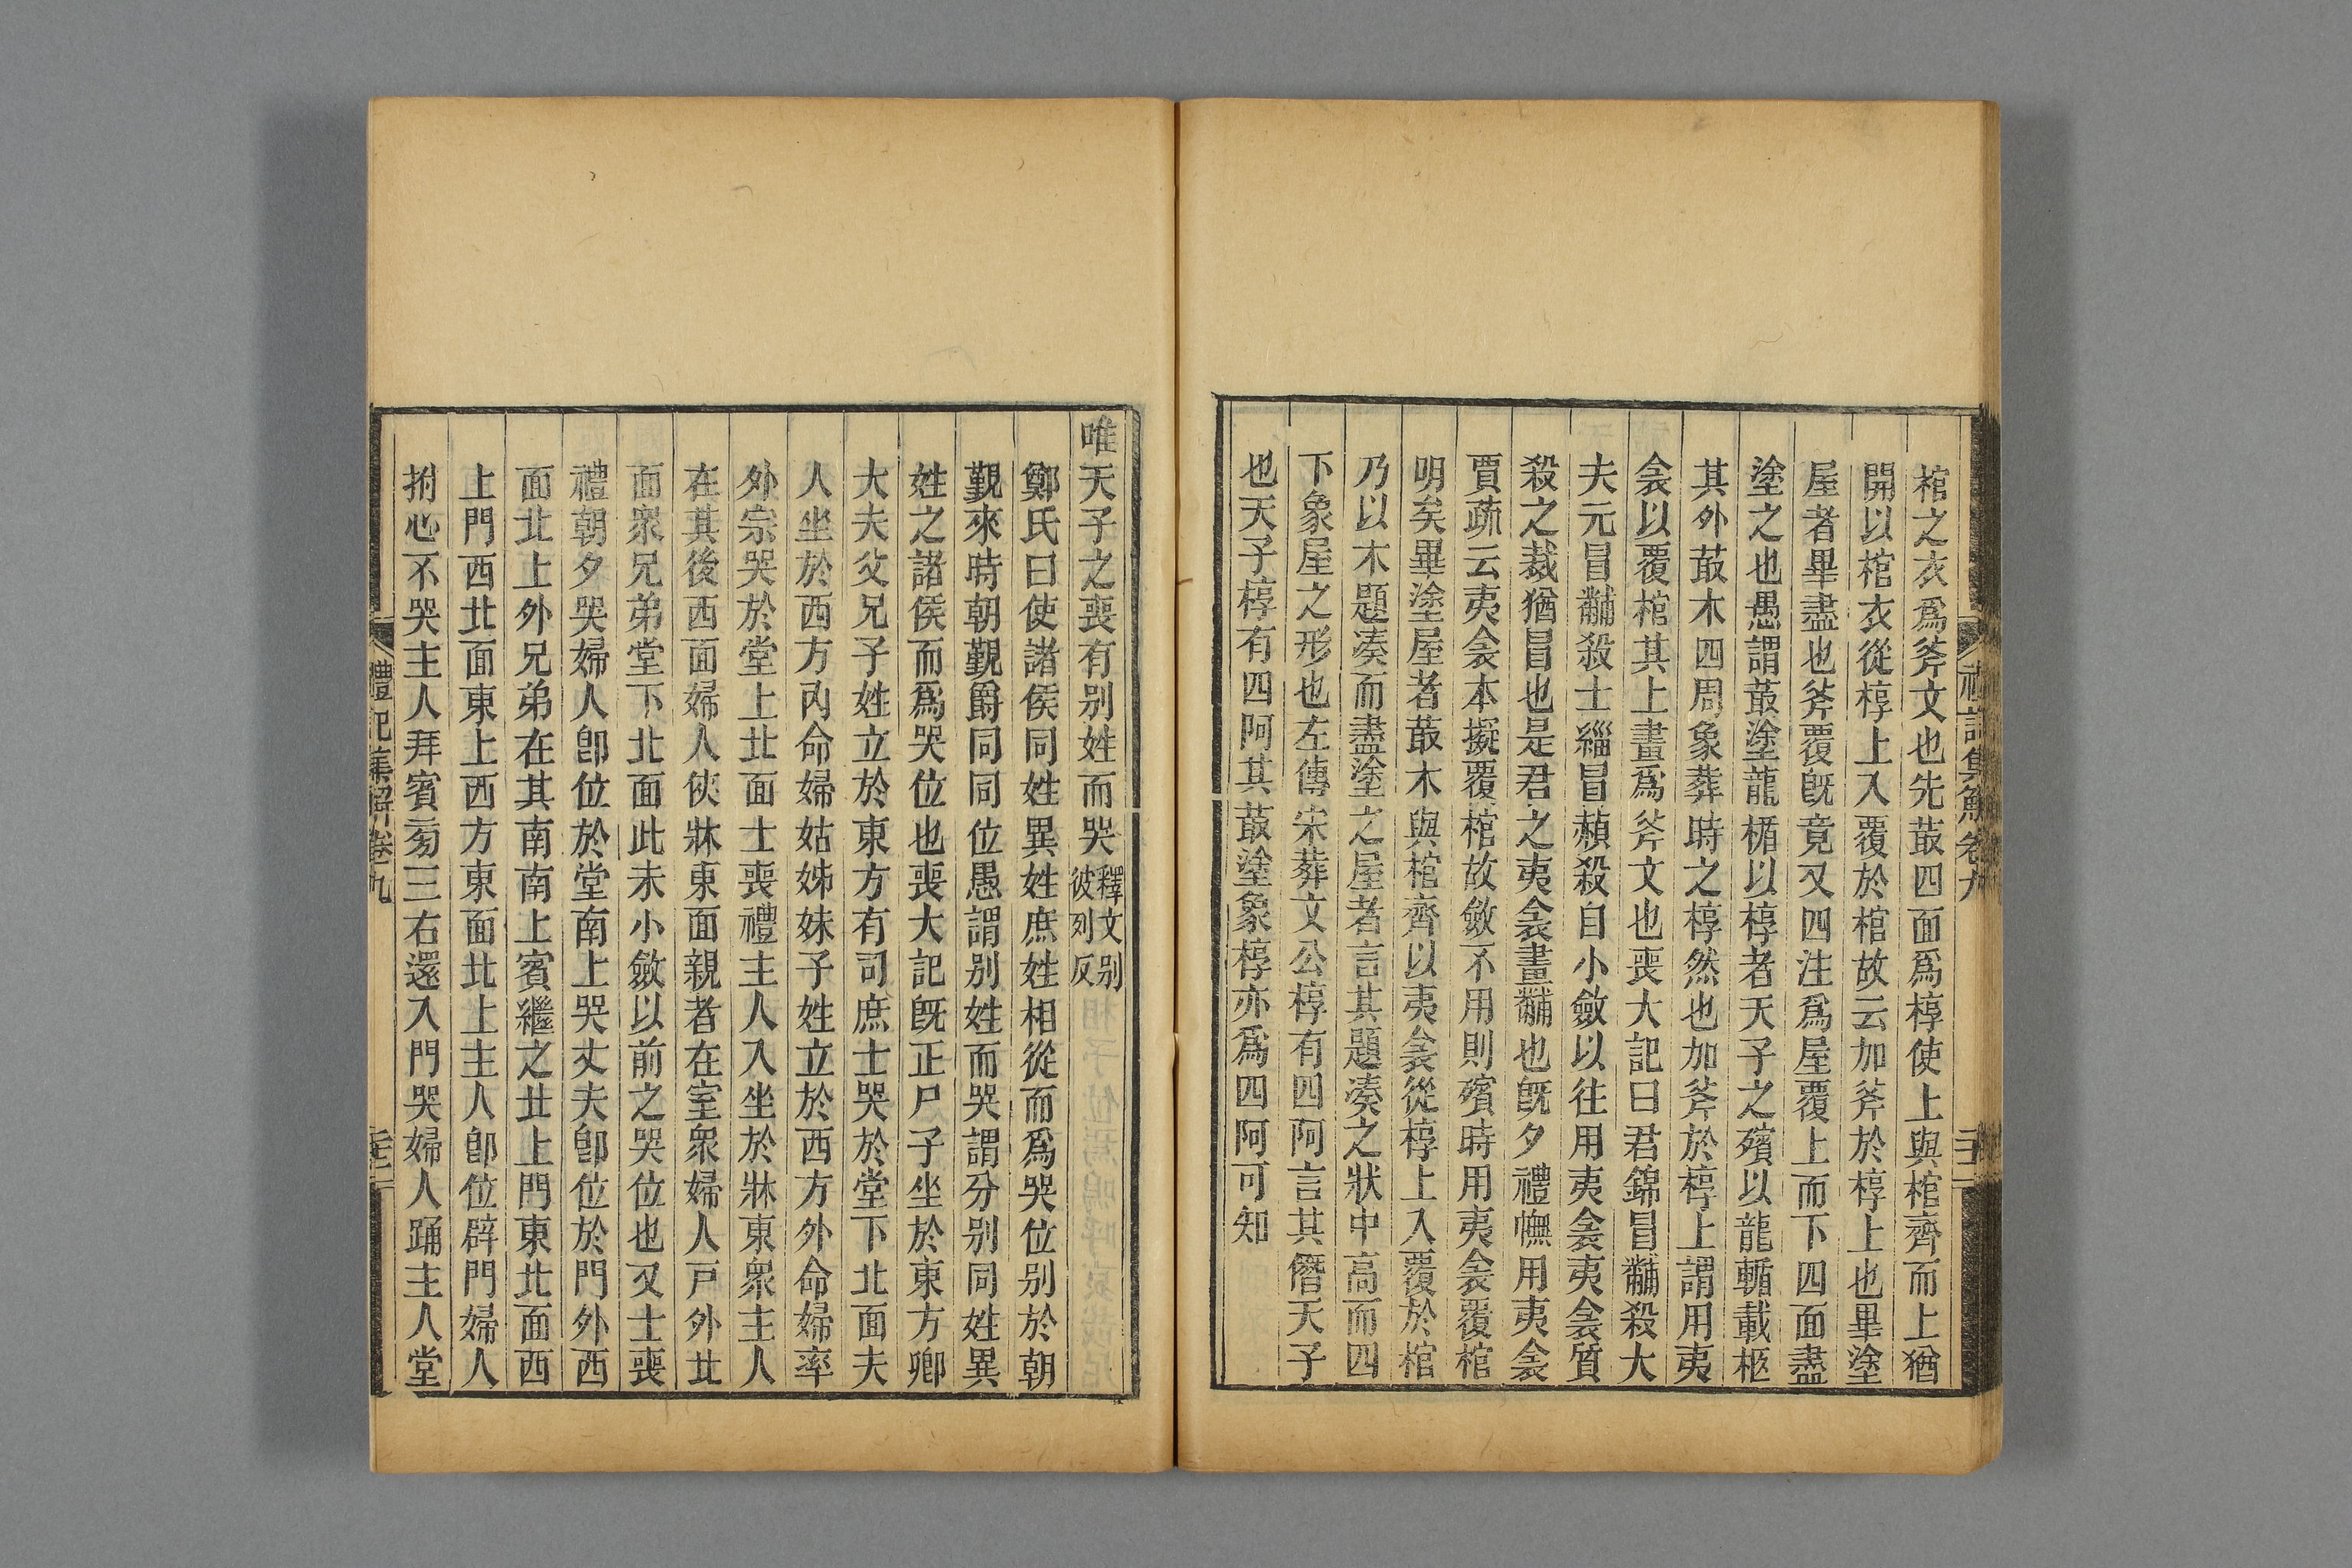 禮記集解卷九
棺之衣爲斧文也先菆四面爲椁使上與棺齊而上猶
開以棺衣從椁上入覆於棺故云加斧於椁上也畢塗
屋者畢盡也斧覆旣竟又四注爲屋覆上而下四面盡
塗之也愚謂菆塗龍楯以椁者天子之殯以龍輴載柩
其外菆木四周象葬時之椁然也加斧於椁上謂用夷
衾以覆棺其上畫爲斧文也喪大記曰君錦冒黼殺大
夫元冒黼殺士緇冒赬殺自小斂以往用夷衾夷衾質
殺之裁猶冒也是君之夷衾畫黼也旣夕禮幠用夷衾
賈疏云夷衾本擬覆棺故斂不用則殯時用夷衾覆棺
明矣畢塗屋者菆木與棺齊以夷衾從椁上入覆於棺
乃以木題湊而盡塗之屋者言其題湊之狀中高而四
下象屋之形也左傳宋葬文公椁有四阿言其僭天子
也天子椁有四阿其菆塗象椁亦爲四阿可知
唯天子之喪有别姓而哭釋文别彼列反
鄭氏曰使諸侯同姓異姓庶姓相從而爲哭位别於朝
覲來時朝覲爵同同位愚謂别姓而哭謂分别同姓異
姓之諸侯而爲哭位也喪大記旣正尸子坐於東方卿
大夫父兄子姓立於東方有司庶士哭於堂下北面夫
人坐於西方內命婦姑姊妹子姓立於西方外命婦率
外宗哭於堂上北面士喪禮主人入坐於牀東衆主人
在其後西面婦人俠牀東面親者在室衆婦人戶外北
面衆兄弟堂下北面此未小斂以前之哭位也又士喪
禮朝夕哭婦人卽位於堂南上哭丈夫卽位於門外西
面北上外兄弟在其南南上賓繼之北上門東北面西
上門西北面東上西方東面北上主人卽位辟門婦人
拊心不哭主人拜賓菊三右還入門哭婦人踊主人堂
禮記集解卷九